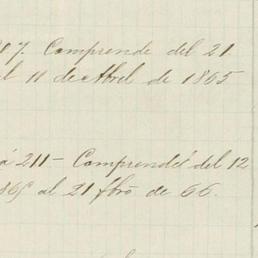 207. Comprende del 21
al 11 de Abrel de 1865
á 211 - Comprende del 12
1865 al 21 fbrō de 66.